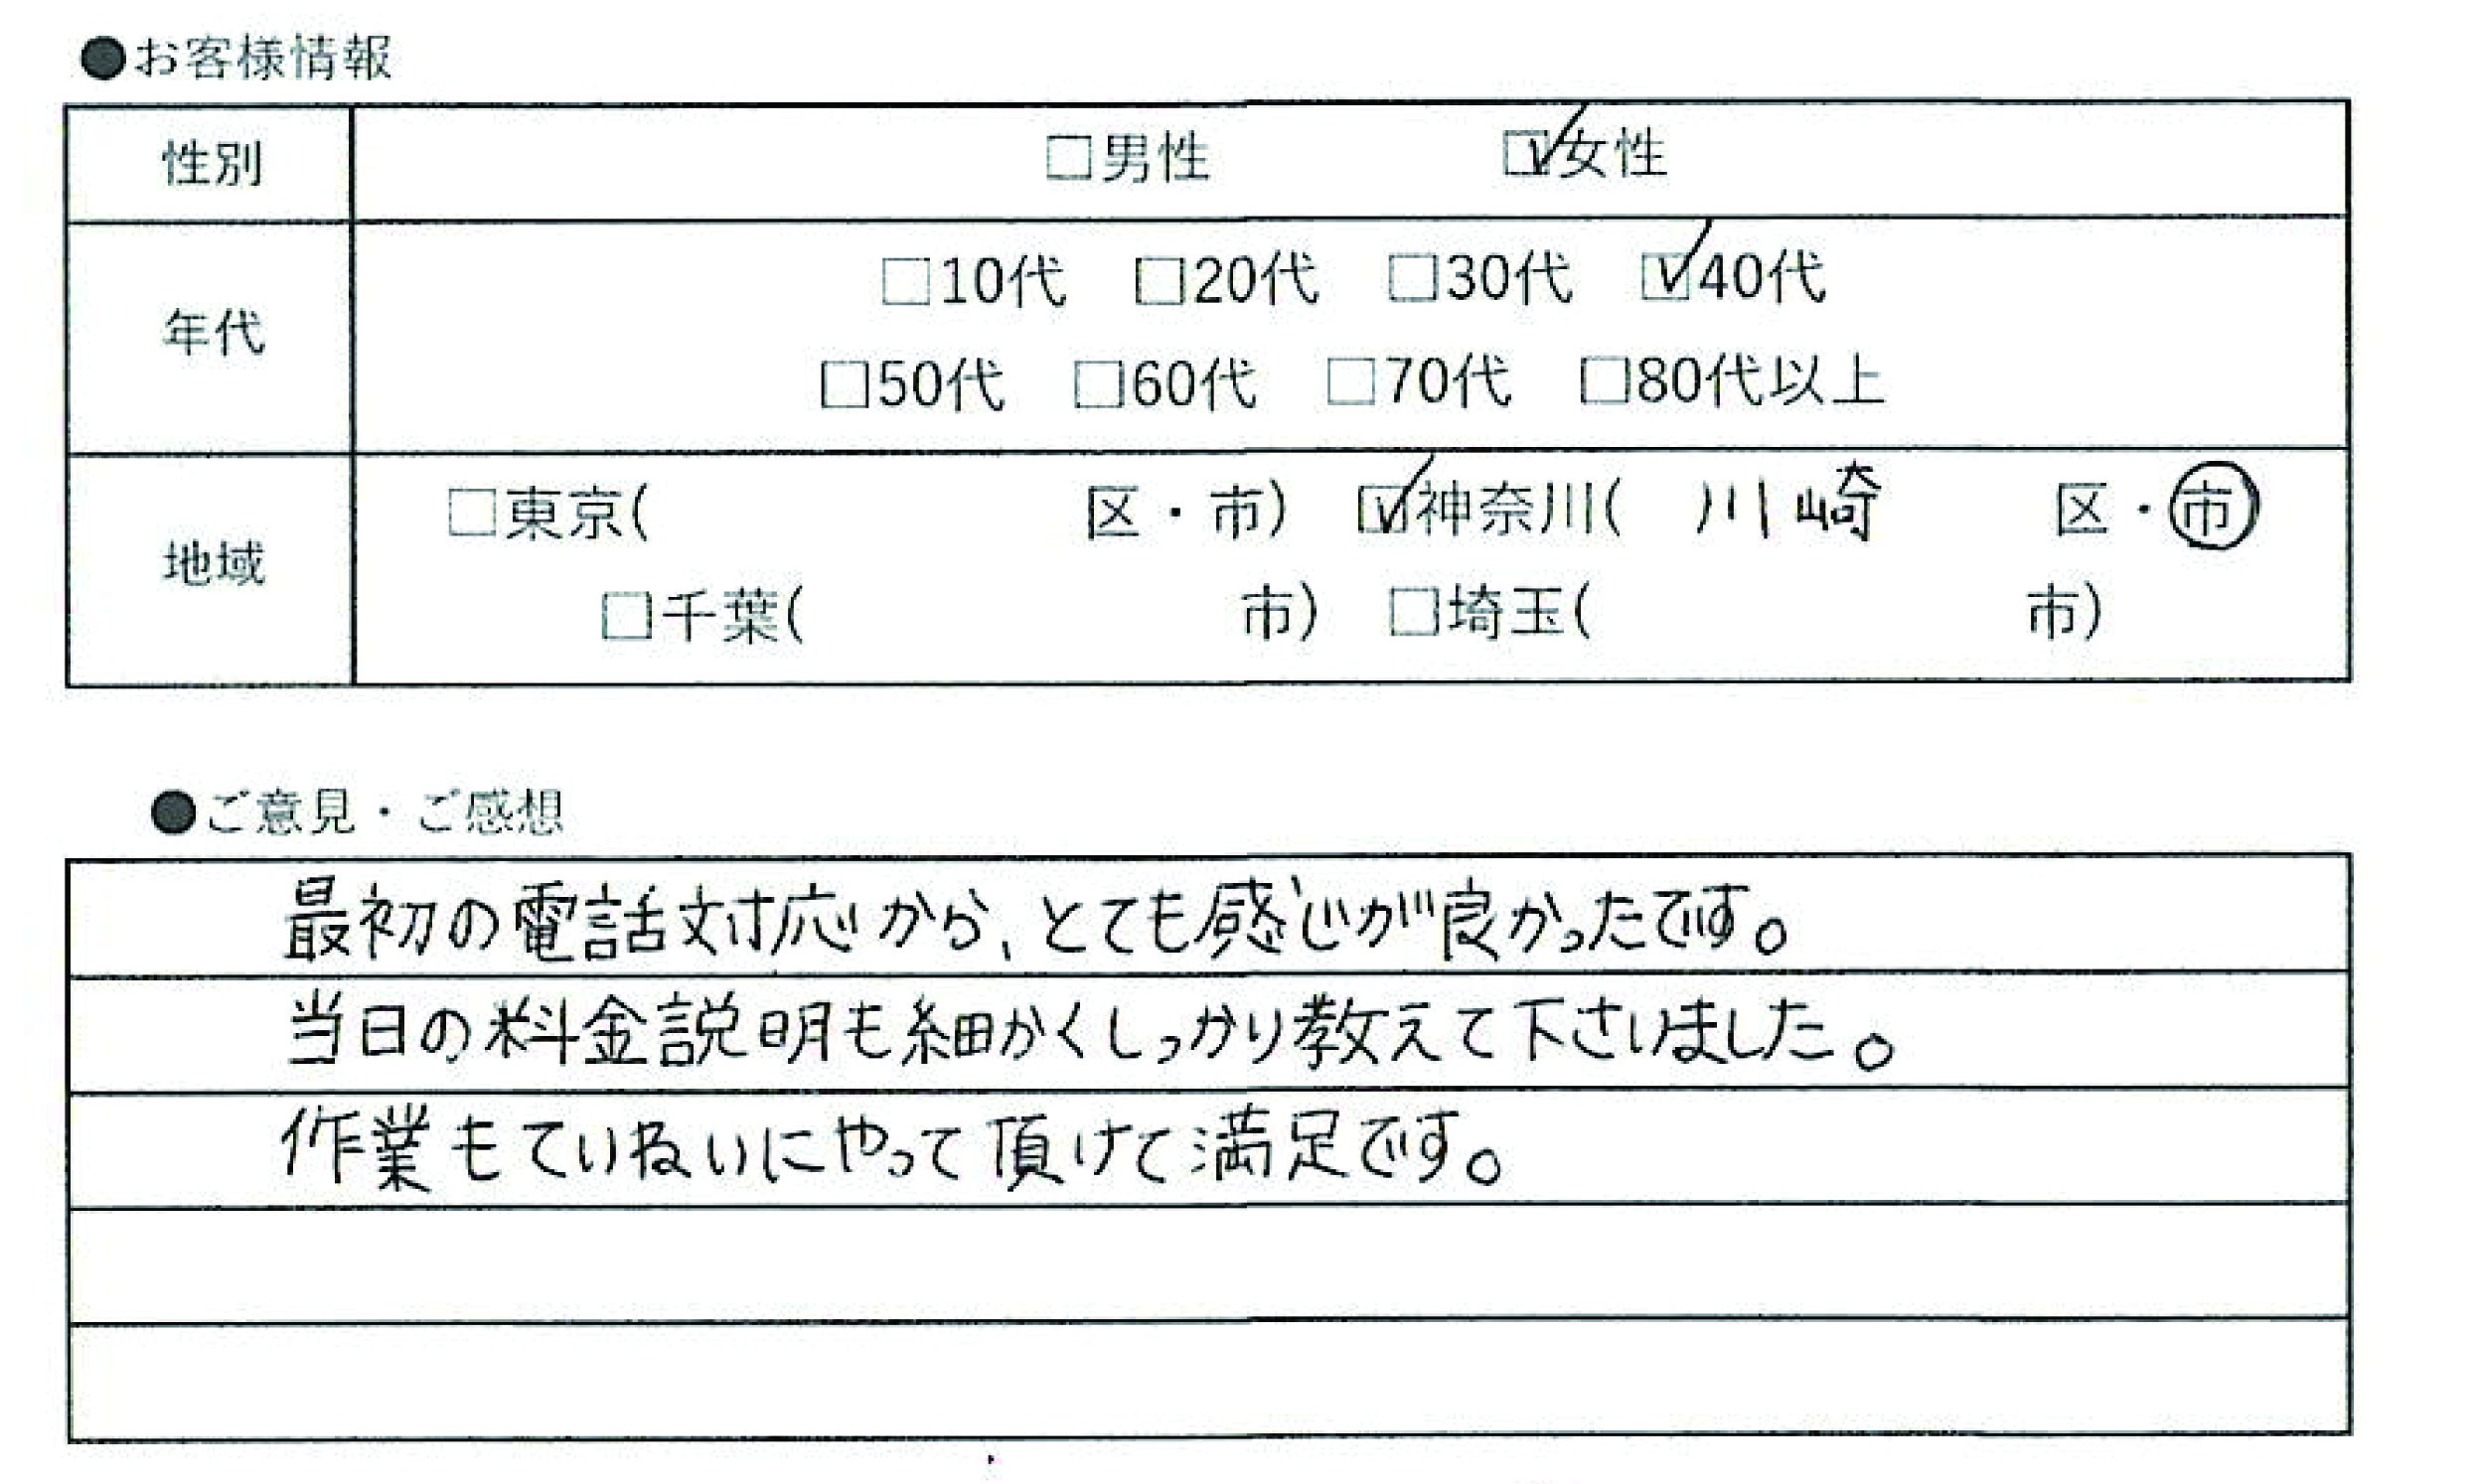 ●お客様情報
性別 □男性 ☑女性
年代 □10代 □20代 □30代 ☑40代
□50代 □60代 □70代 □80代以上
地域 □東京( 区・市) ☑神奈川( 川崎 区・市)
□千葉( 市) □埼玉( 市)
●ご意見・ご感想
最初の電話対応から、とても感じが良かったです。
当日の料金説明も細かくしっかり教えて下さいました。
作業もていねいにやって頂けて満足です。